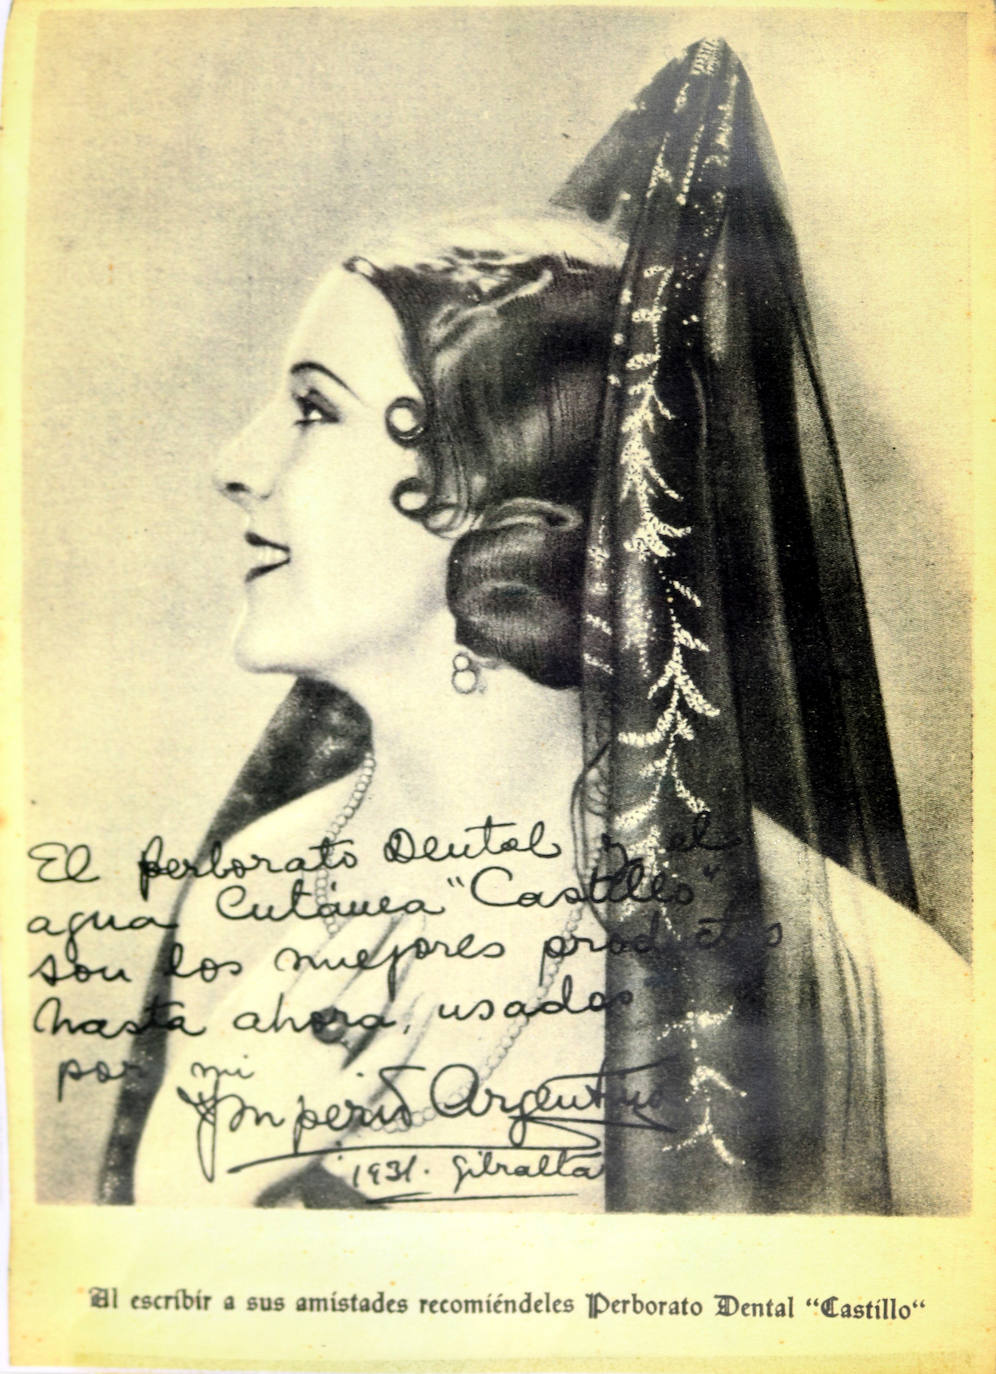 El perborato Dental y el
agua Cutánea "Castillo"
son los mejores productos
hasta ahora, usados
por mi
Imperio Argentina
1931. Gibralta
Al escribir a sus amistades recomiéndeles Perborato Dental "Castillo"